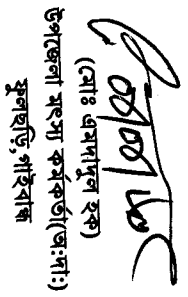 (মোঃ এমদাদুল হক)
উপজেলা মৎস্য কর্মকর্তা(অঃদাঃ)
ফুলছড়ি, গাইবান্ধা